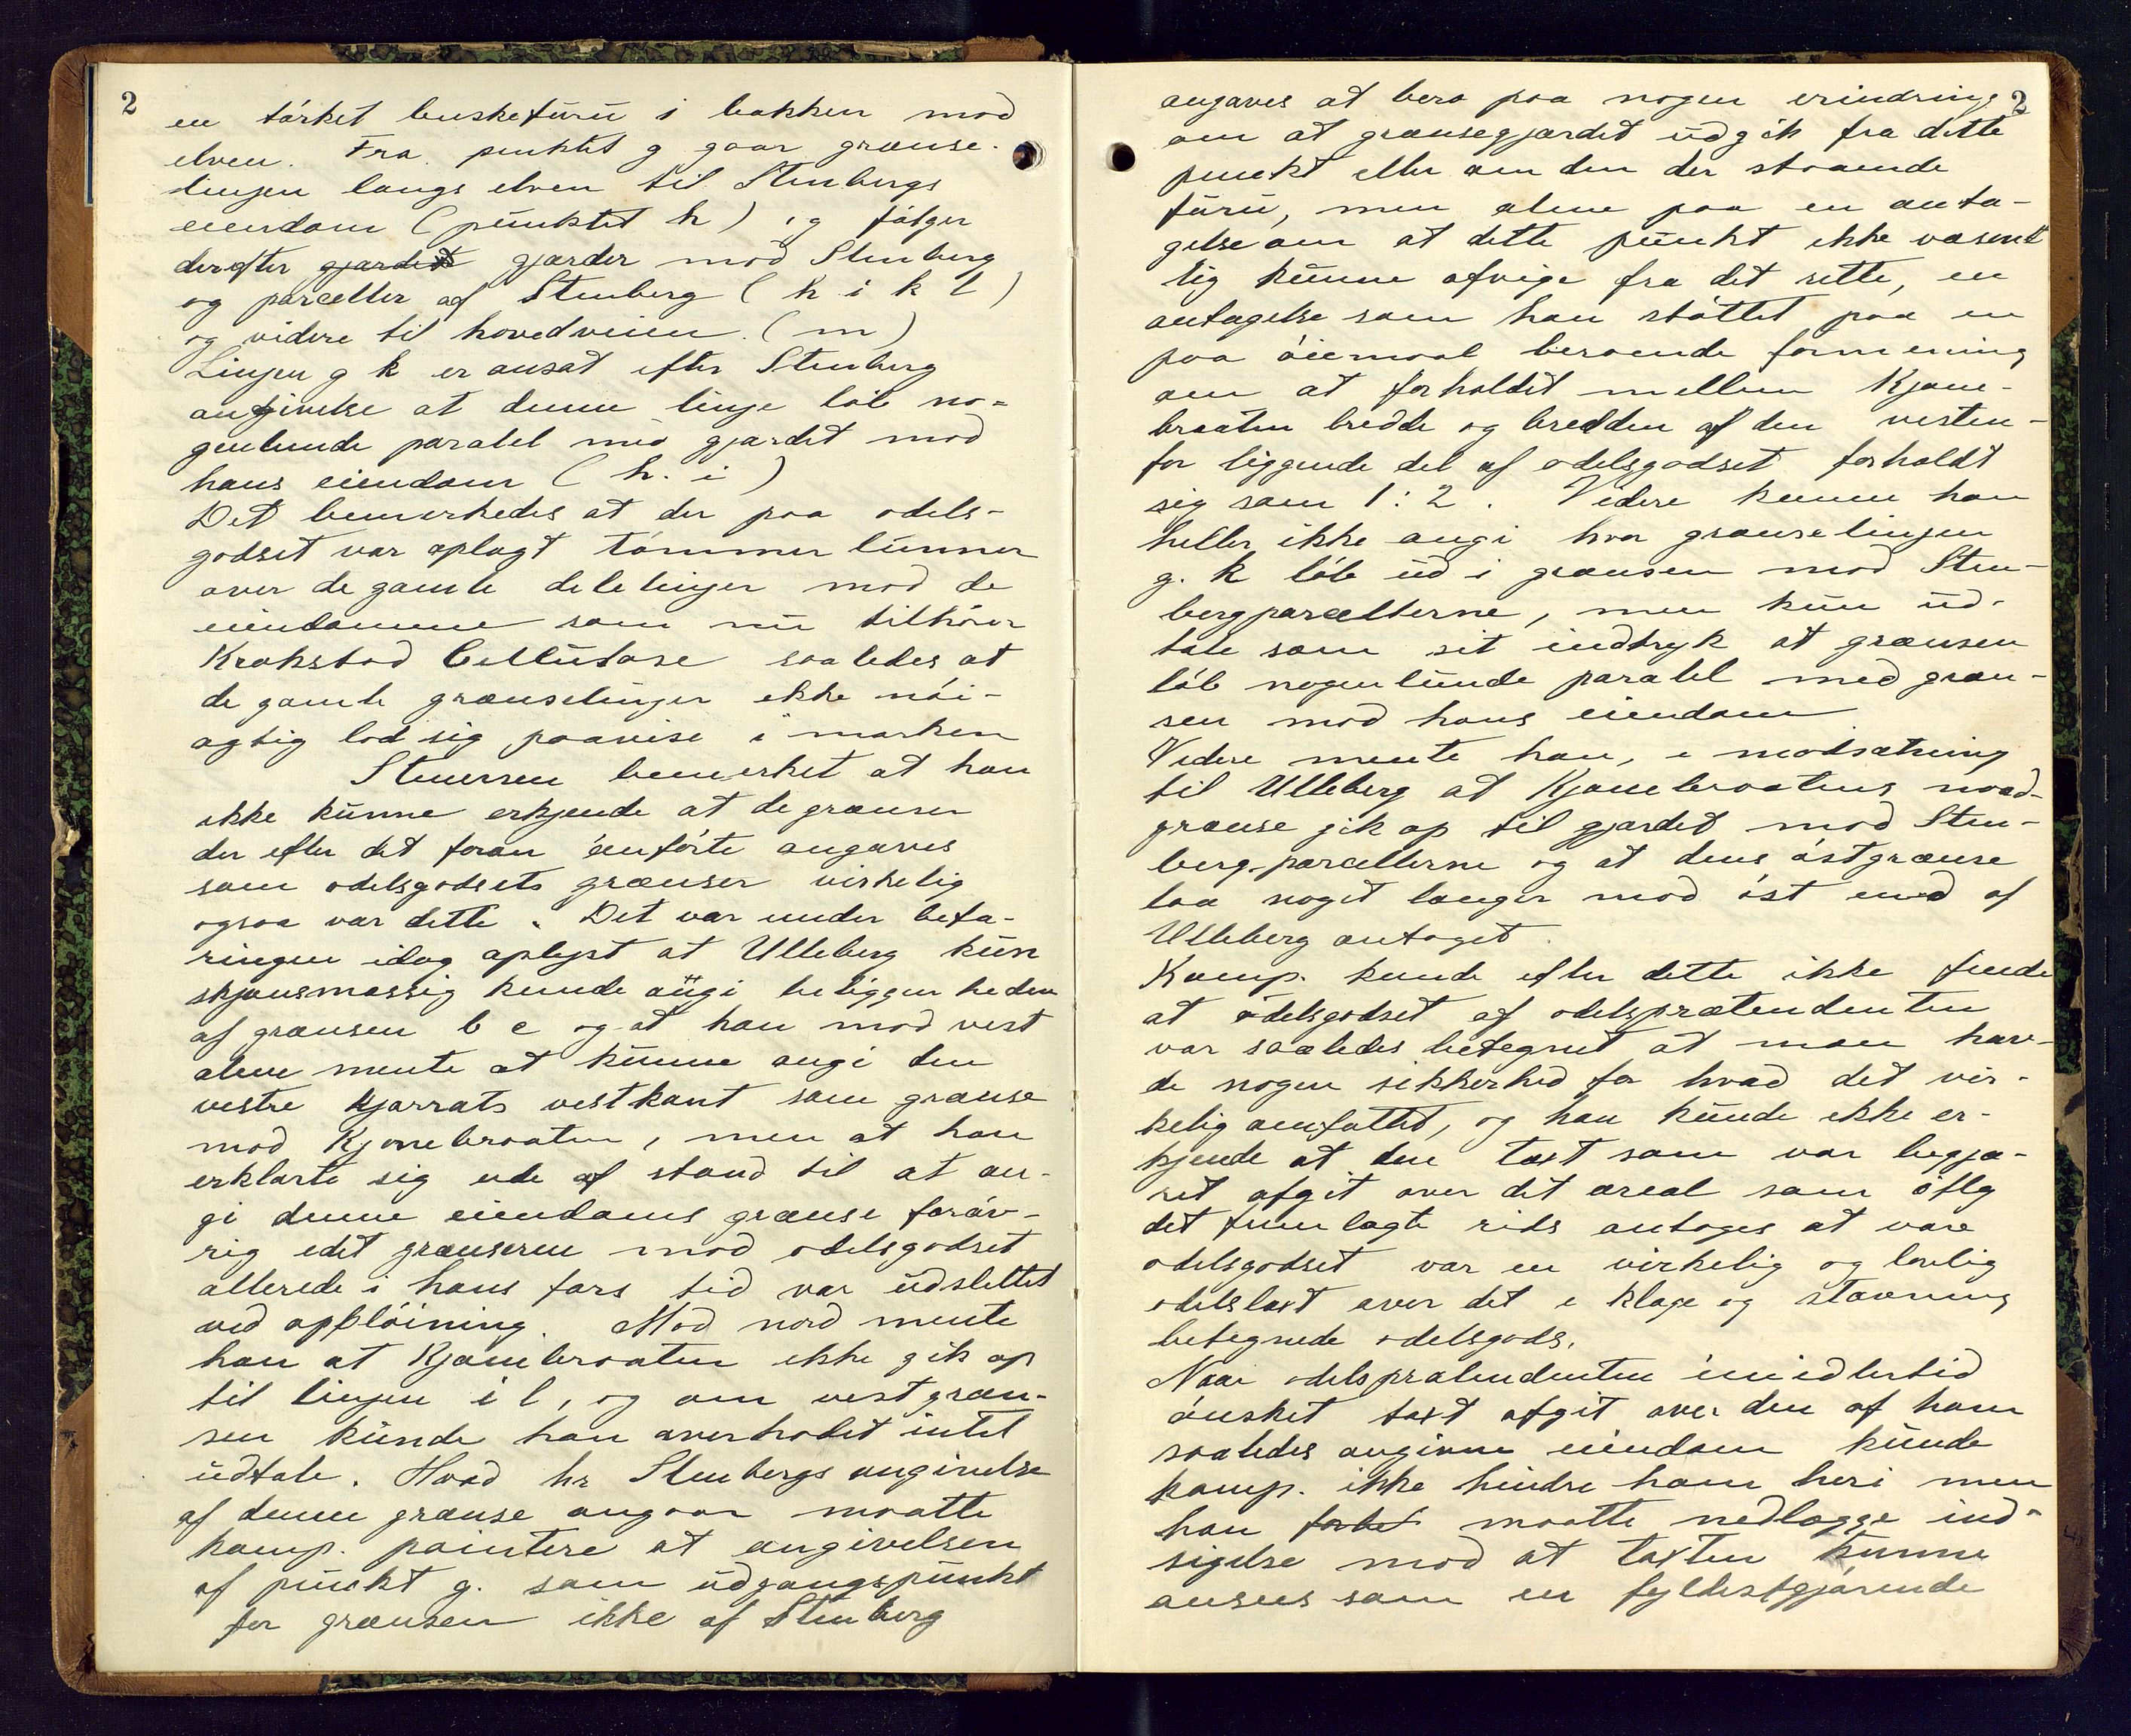 2
en tørket buskefuru i bakken mod
elven. Fra punktet g gaar grænse-
linjen langs elven til Stenbergs
eiendom (punktet h) og følger
derefter gjærdet gjærder mod Stenberg
og parceller af Stenberg (h i k l)
og videre til hovedveien (m)
Linjen g k er ansat efter Stenberg
angivelse at denne linje løb no-
genlunde paralel med gjærdet mod
hans eiendom (h. i)
Det bemerkedes at der paa odels-
godset var oplagt tømmer lunner
over de gamle delelinjer mod de
eiendomme som nu tilhører
Krokstad Cellulose saaledes at
de gamle grænselinjer ikke nøi-
agtig lod sig paavise i marken
Stenersen bemerket at han
ikke kunne erkjende at de grænser
der efter det foran anførte angaves
som odelsgodsets grænser virkelig
ogsaa var dette. Det var under befa-
ringen idag oplyst at Ulleberg kun
skjønsmæssig kunde angi beliggenheden
af grænsen b c og at han mod vest
alene mente at kunne angi den
vestre kjærrats vestkant som grænse
mod Kjonebraaten, men at han
erklærte sig ude af stand til at an-
gi denne eiendoms grænse forøv-
rig idet grænserne mod odelsgodset
allerede i hans fars tid var udslettet
ved opfløining. Mod nord mente
han at Kjonebraaten ikke gik op
til linjen i l, og om vestgræn-
sen kunde han overhodet intet
udtale. Hvad hr Stenbergs angivelse
af denne grænse angaar maatte
komp. pointere at angivelsen
af punkt g. som udgangspunkt
for grænsen ikke af Stenberg
2
angaves at bero paa nogen erindring
om at grænsegjærdet udgik fra dette
punkt eller om den der staaende
furu, men alene paa en anta-
gelse om at dette punkt ikke væsent
lig kunne afvige fra det rette, en
antagelse som han støttet paa en
paa øiemaal beroende formening
om at forholdet mellem Kjone-
braaten bredde og bredden af den vesten-
for liggende del af odelsgodset forholdt
sig som 1:2. Videre kunne han
heller ikke angi hvor grænselinjen
g. k løb ud i grænsen mod Sten-
bergparcellerne, men kun ud-
tale som sit indtryk at grænsen
løb nogenlunde paralel med græn-
sen mod hans eiendom
Videre mente han, i modsætning
til Ulleberg at Kjonebraatens nord-
grænse gik op til gjærdet mod Sten-
berg-parcellerne og at dens østgrænse
laa noget længer mod øst end af
Ulleberg antaget.
Komp. kunde efter dette ikke finde
at odelsgodset af odelsprætendenten
var saaledes betegnet at man hav-
de nogen sikkerhed for hvad det vir-
kelig omfattet, og han kunde ikke er-
kjende at den taxt som var begjæ-
ret afgit over det areal som iflg
det fremlagte rids antoges at være
odelsgodset var en virkelig og lovlig
odelstaxt over det i klage og stævning
betegnede odelsgods.
Naar odelsprætendenten imidlertid
ønsket taxt afgit over den af ham
saaledes angivne eiendom kunde
komp. ikke hindre ham heri men
han maatte nedlægge ind-
sigelse mod at taxten kunne
ansees som en fyldestgjørende